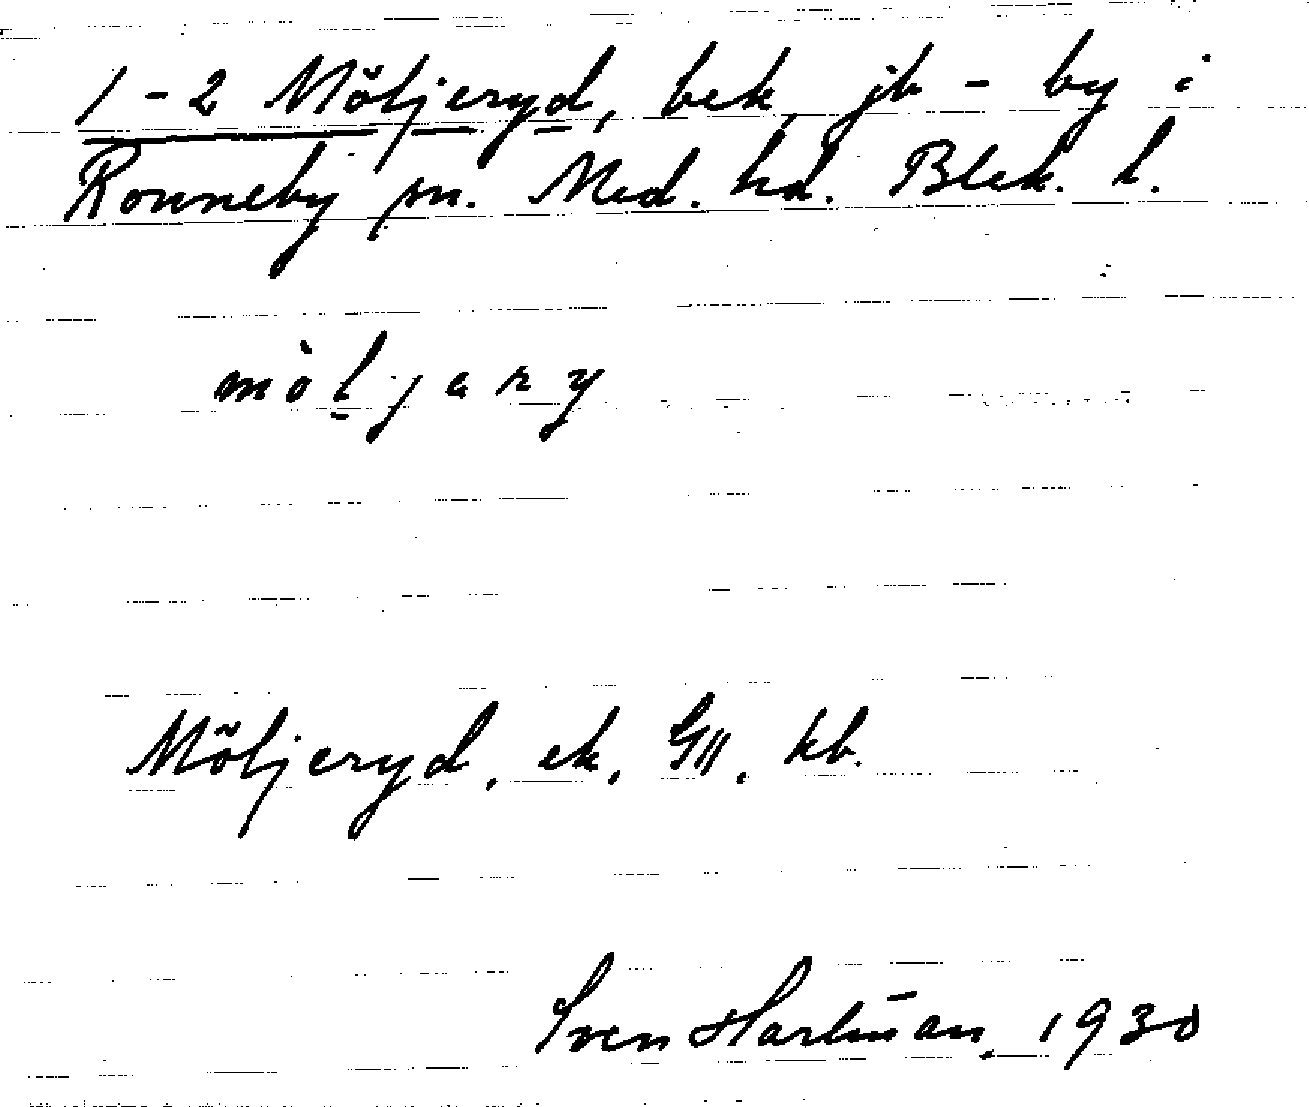 1-2 Möljeryd, bek, jb-by i
Ronneby sn. Med. hd. Blek. l.
mòljary
Möljeryd, ek, G II, kb.
Sven Hartman, 1930